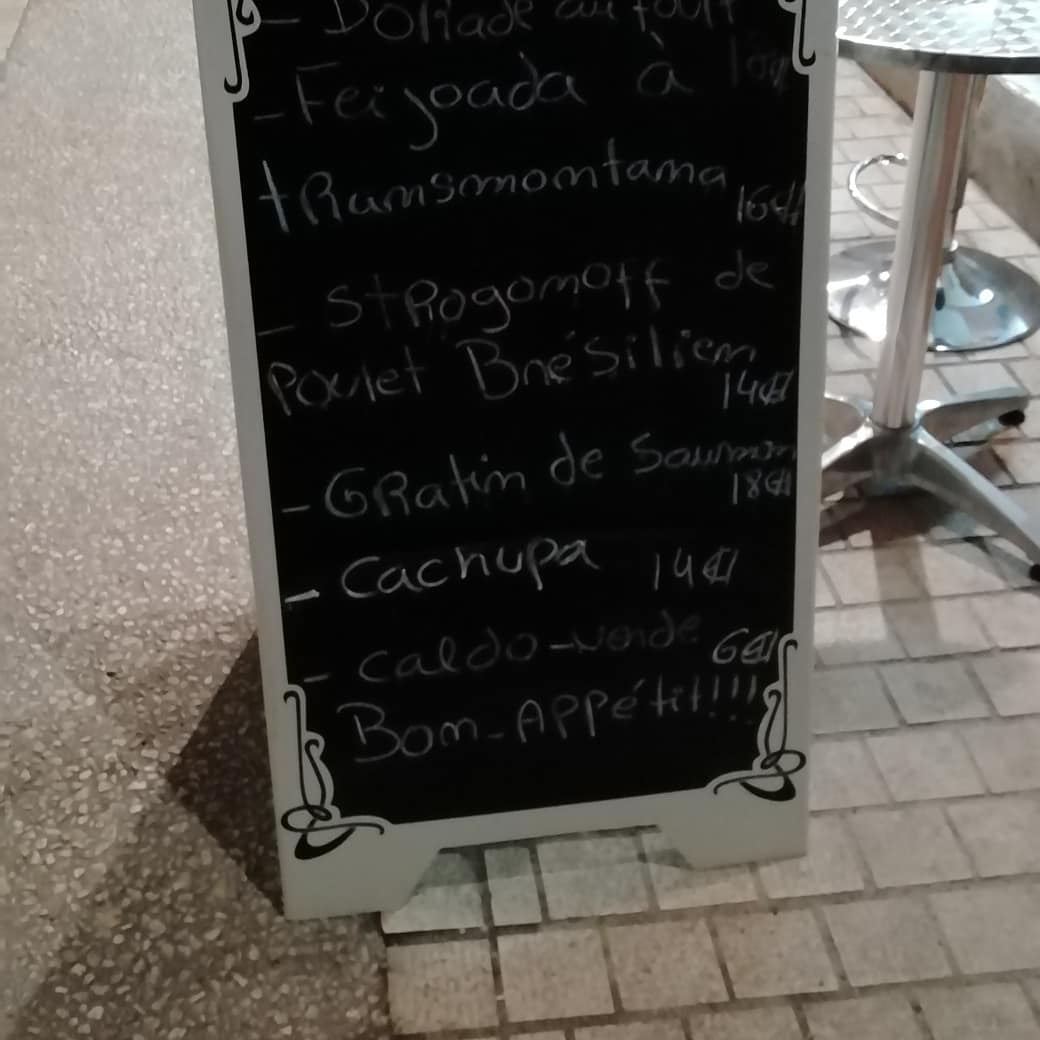 - Dorade au four
- Feijoada à
transmontana
16€
- Strogonoff de
Poulet Brésilien
14€
- Gratin de Saumon
18€
- Cachupa 14€
- Caldo-verde 6€
Bom-Appétit!!!